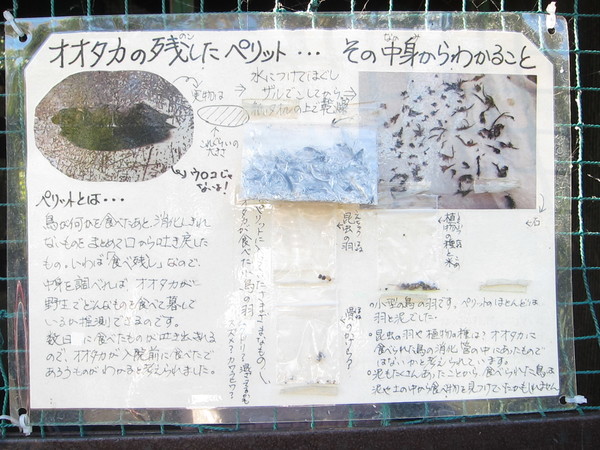 オオタカの残したペリット・・・ その中身からわかること
ノコ
なかみ
実物は
これぐらいの
大きさ
ウロコじゃ
ないよ!
→水につけてほぐし
ザルでこしてから→
の上で乾燥
ペリットとは・・・
鳥が何かを食べたあと、消化しきれ
ないものをまとめて口から吐き戻した
もの。いわば「食べ残し」なので、
中身を調べれば、オオタカが
野生でどんなものを食べて暮して
いるか推測できるのです。
数日に食べたものが吐き出される
ので、オオタカが入院前に食べたで
あろうものがわかると考えられました。
オオタカが食べた小鳥の羽
スズメ? カワラヒワ?
昆虫の羽
骨のかけら?
植物の種と米
石
○小型の鳥の羽です。ペリットのほとんどは
羽と泥でした。
○昆虫の羽や植物の種は?オオタカに
食べられた鳥の消化管の中にあったもので
はないかと考えられています。
○泥もたくさんあったことから、食べられた鳥は
泥や土の中から食べ物を見つけていたかもしれません